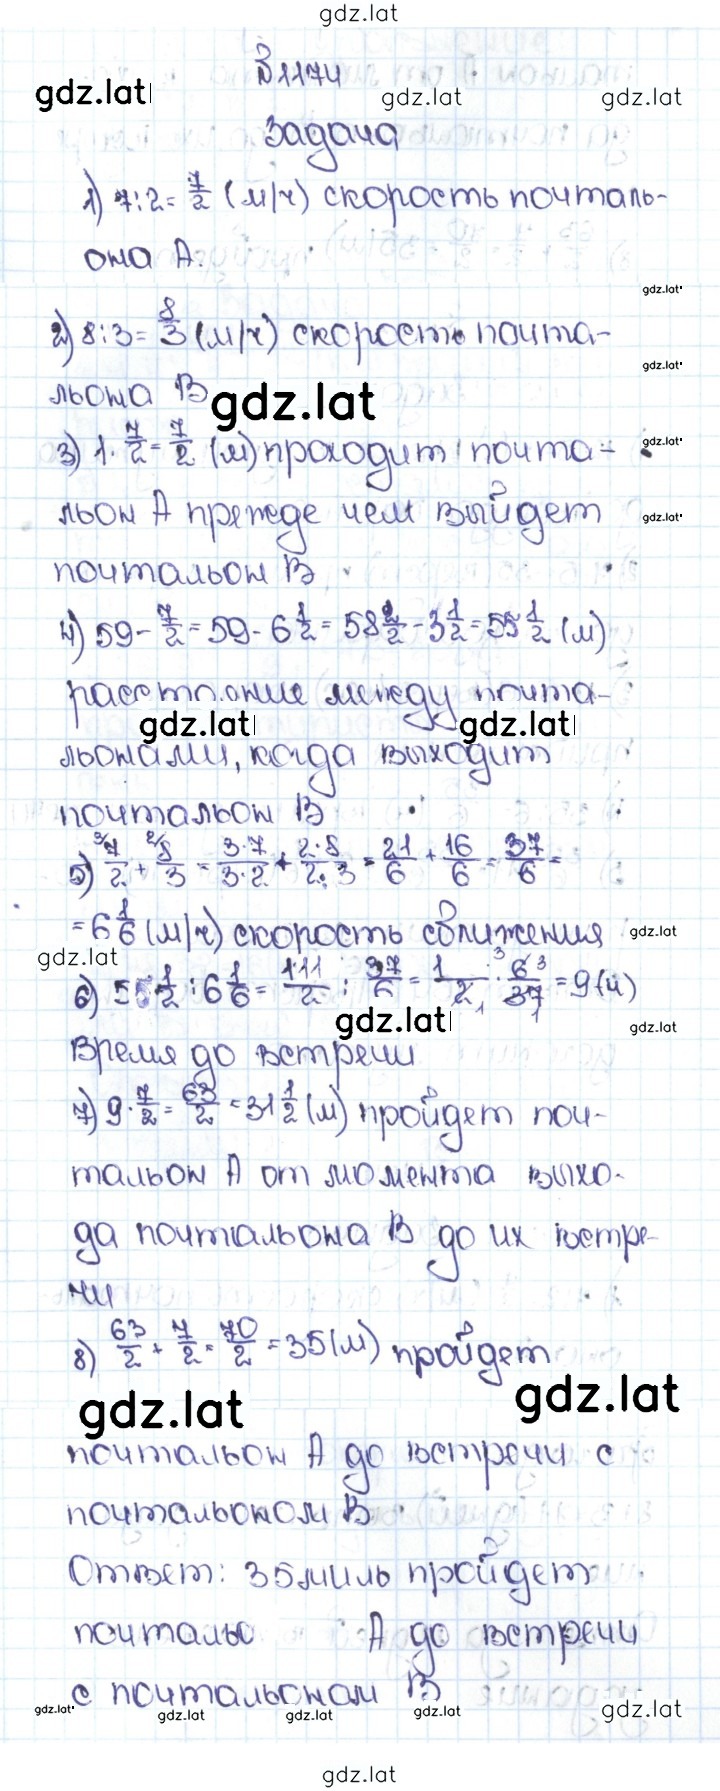 gdz.lat
№1174
gdz.lat gdz.lat gdz.lat
Задача
1) 7:2= 7/2 (м/ч) скорость почталь-
она А.
gdz.lat
2) 8:3= 8/3 (м/ч) скорость почта-
gdz.lat
льона В
gdz.lat
3) 1·7/2=7/2 (м) проходит почта-
gdz.lat
льон А прежде чем выйдет
gdz.lat
почтальон В
4) 59-7/2=59-6 1/2=58 2/2-3 1/2=55 1/2 (м)
расстояние между почта-
gdz.lat gdz.lat
льонами, когда выходит
почтальон В
5) 3/7/2 + 2/8/3 = 3·7/3·2 + 2·8/2·3 = 21/6 + 16/6 = 37/6 =
=6 1/6 (м/ч) скорость сближения
gdz.lat
gdz.lat
6) 55 1/2 : 6 1/6 = 111/2 : 37/6 = 9(ч)
gdz.lat gdz.lat
Время до встречи
7) 9·7/2=63/2=31 1/2 (м) пройдет поч-
тальон А от момента выхо-
да почтальона В до их встре-
чи
8) 63/2+7/2=70/2=35(м) пройдет
gdz.lat gdz.lat
почтальон А до встречи с
почтальоном В
Ответ: 35миль пройдет
почтальо А до встречи
с почтальоном В
gdz.lat gdz.lat gdz.lat gdz.lat gdz.lat
gdz.lat